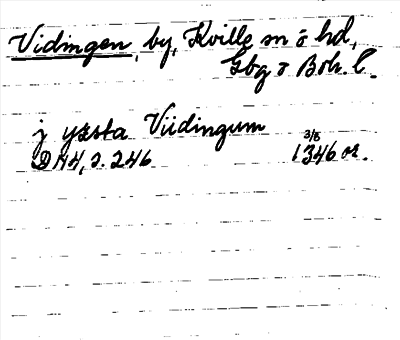 Vidingen, by, Kville sn o hd,
Gbg o Boh. l.
j yzsta Viidingum
DN4, s. 246 3/8 1346 or.